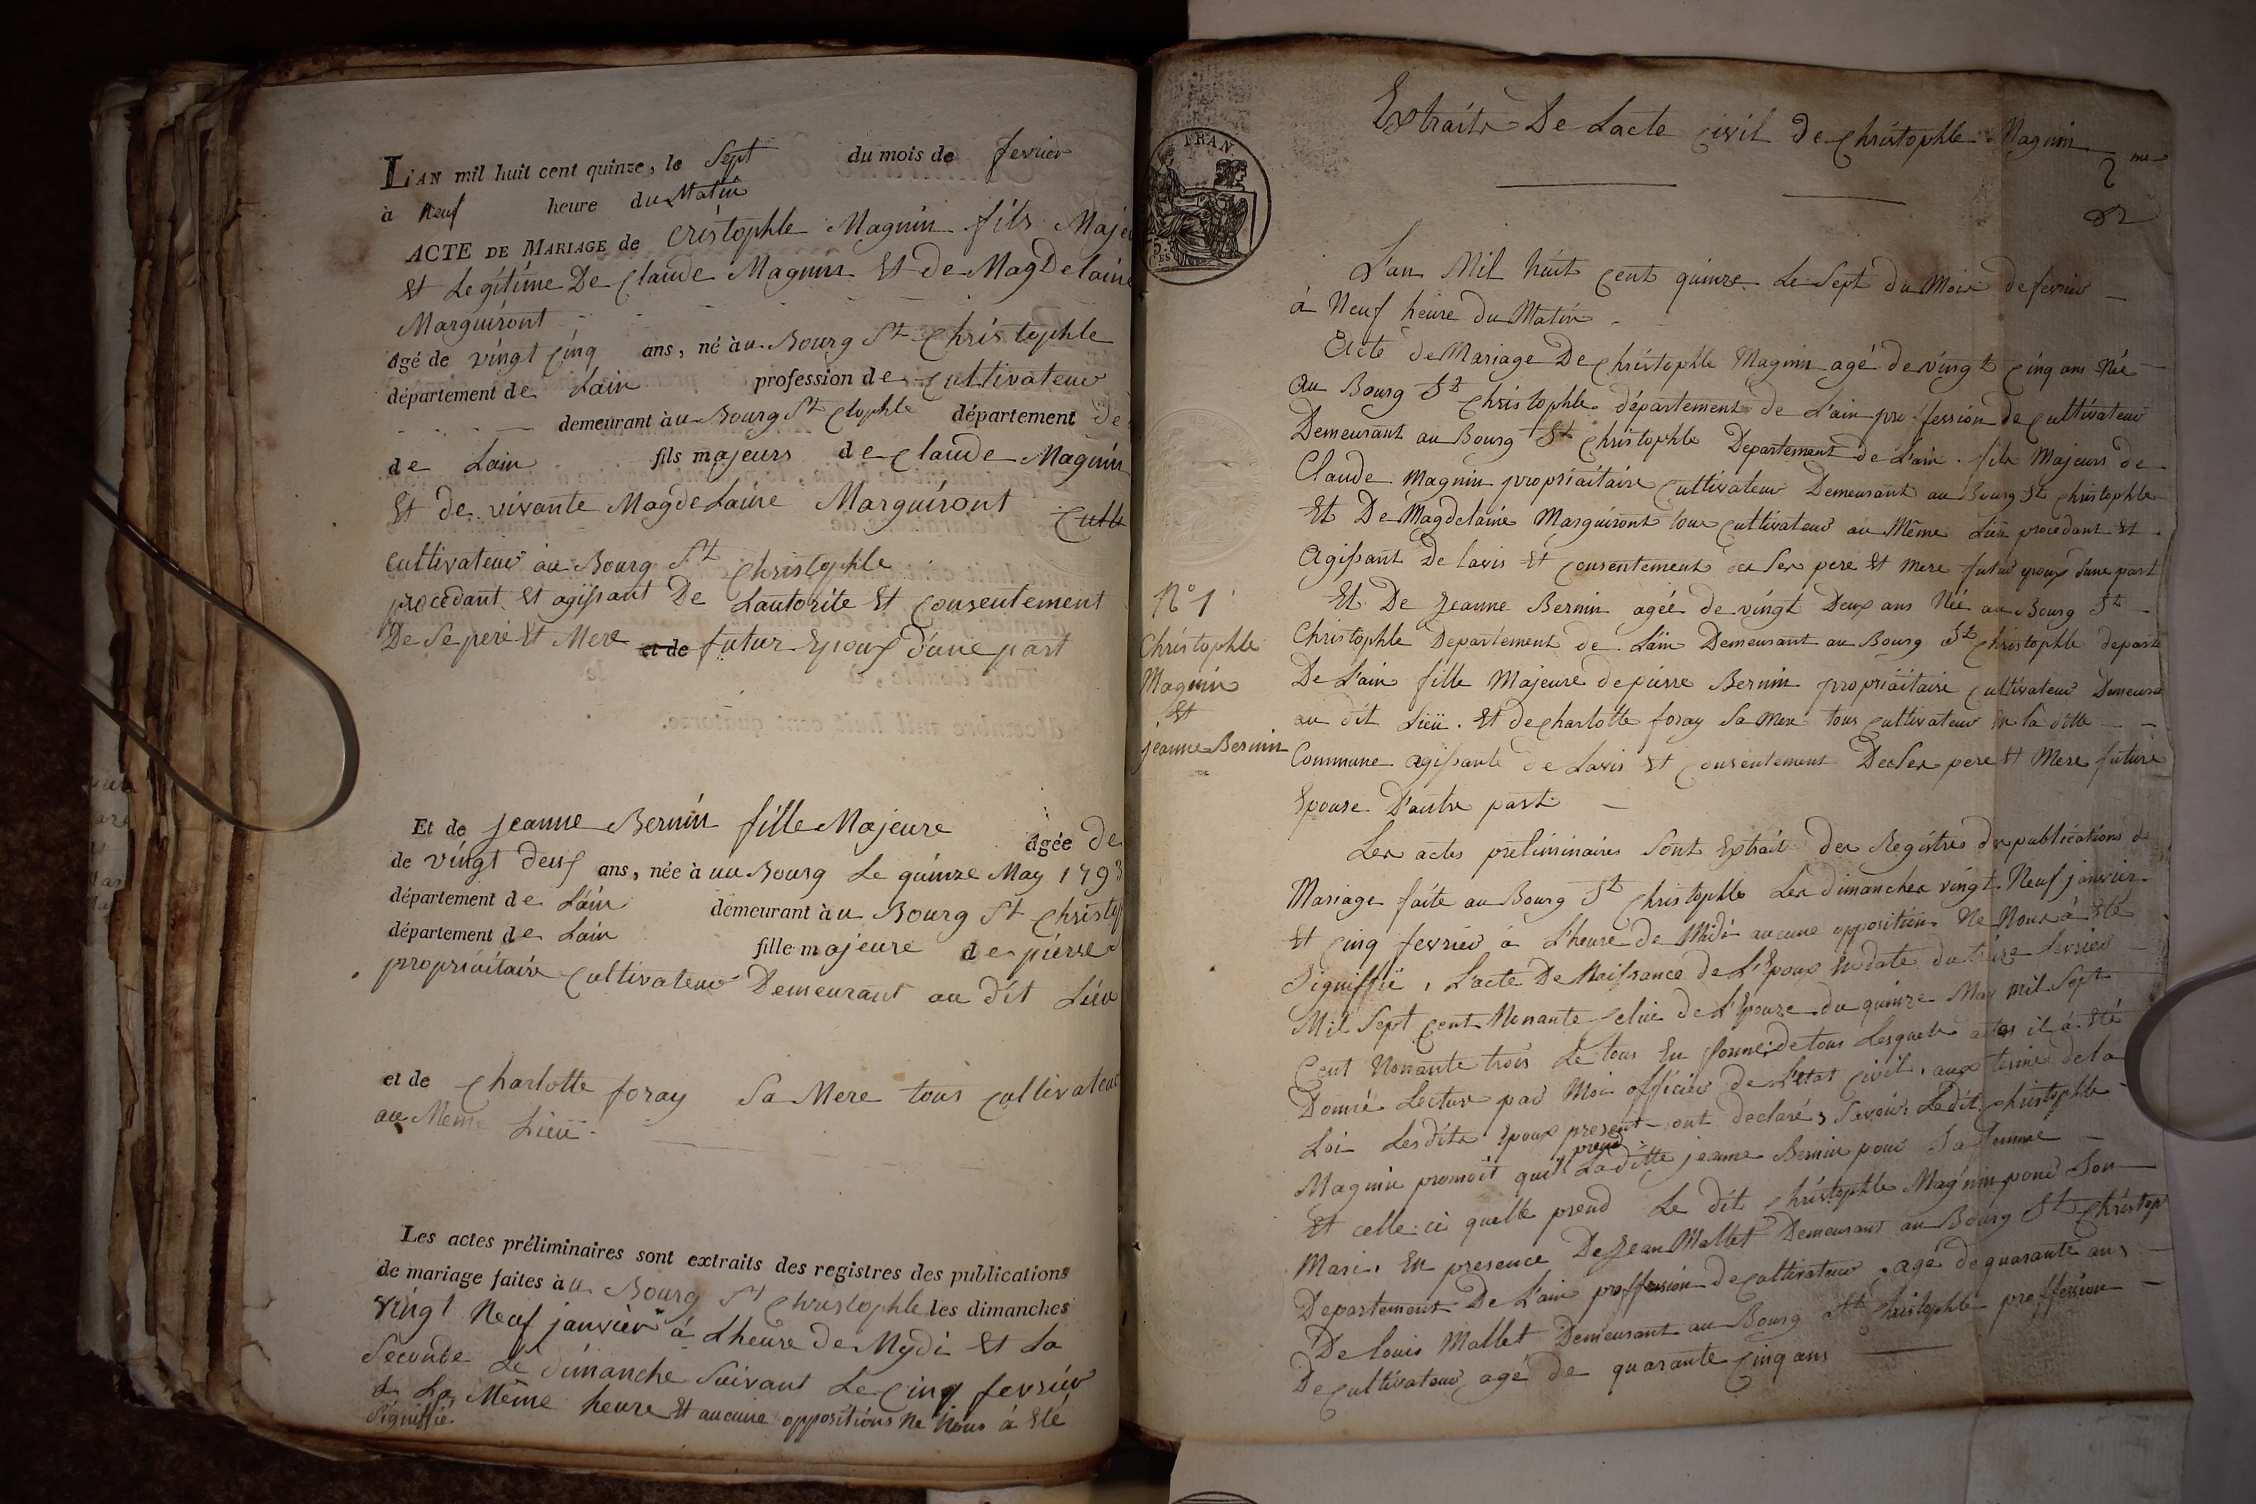 L'AN mil huit cent quinze, le Sept du mois de fevrier
à Neuf heure du Matin
ACTE DE MARIAGE de Cristophle Magnin fils Maje
Et Legitime De Claude Magnin Et de Magdelaine
Marguiront
âgé de vingt cinq ans, né àu Bourg St Christophle
département de Lain profession de Cultivateur
demeurant àu Bourg St Ctophle département de
de Lain fils majeurs de Claude Magnin
Et de vivante Magdelaine Marguiront Culti
cultivateur au Bourg St Christophle
procedant Et agissant De Lautorite Et Consentement
De Se pere Et Mere et de futur Epoux d'une part
Et de jeanne Bernin fille Majeure âgée de
de vingt deux ans, née à au Bourg Le quinze May 1793
département de Lain demeurant àu Bourg St Christop
département de Lain fille majeure de pierre
propriaitaire Cultivateur Demeurant au dit Lieu
et de Charlotte foray Sa Mere tous Cultivateur
au Meme Lieu
Les actes préliminaires sont extraits des registres des publications
de mariage faites àu Bourg St Christophle les dimanches
vingt Neuf janvier à Lheure de Mydi Et La
Seconde Le dimanche Suivant Le Cinq fevrier
à La Même heure Et aucune oppositions Ne Nous à Eté
Signiffié.
FRAN
Extraite De Lacte Civil de Christophle Magnin
2 me
L'an Mil huit Cent quinze Le Sept du Mois de fevrier
à Neuf heure du Matin
Acte de Mariage De Christophle Magnin agé de vingt Cinq ans Née
au Bourg St Christophle département de L'ain proffession de Cultivateur
Demeurant au Bourg St Christophle Departement de L'ain fils Majeurs de
Claude Magnin propriaitaire Cultivateur Demeurant au Bourg St Christophle
Et De Magdelaine Marguiront tous Cultivateur au Même Lieu procedant Et
Agissant De Lavis Et Consentement de Ses pere Et Mere futur Epoux d'une part
Et De Jeanne Bernin agée de vingt Deux ans Née au Bourg St
Christophle Departement de Lain Demeurant au Bourg St Christophle departe
De L'ain fille Majeure de pierre Bernin propriaitaire Cultivateur Demeura
au dit Lieu. Et de Charlotte foray Sa Mere tous Cultivateur de la ditte
Commune agissante de Lavis Et Consentement De Ses pere Et Mere future
Epouse D'autre part
Les actes preliminaires Sont Extrait des Registres de publications de
Mariage faite au Bourg St Christophle Les dimanches vingt Neuf janvier
Et Cinq fevrier à L'heure de Midi aucune opposition Ne Nous à Eté
Signiffié, L'acte De Naissance de L'Epoux En date du treize fevrier
Mil Sept Cent Nonante Celui de L'Epouze du quinze May mil Sept
Cent Nonante trois Le tous En forme, de tous Lesquels actes il à Eté
Donné Lecture par Moi officier de L'etat Civil, aux terme de la
Loi Lesdits Epoux present ont declaré, Savoir Ledit Christophle
Magnin promoit quil prend La ditte jeanne Bernin pour Sa femme
Et celle ci quelle prend Le dit Christophle Magnin pour Son
Mari. En presence De Jean Mallet Demeurant au Bourg St Christop
Departement De L'ain proffession de Cultivateur, agé de quarante ans
De Louis Mallet Demeurant au Bourg St Christophle proffession
De Cultivateur agé de quarante Cinq ans
No 1
Christophle
Magnin
Et
jeanne Bernin